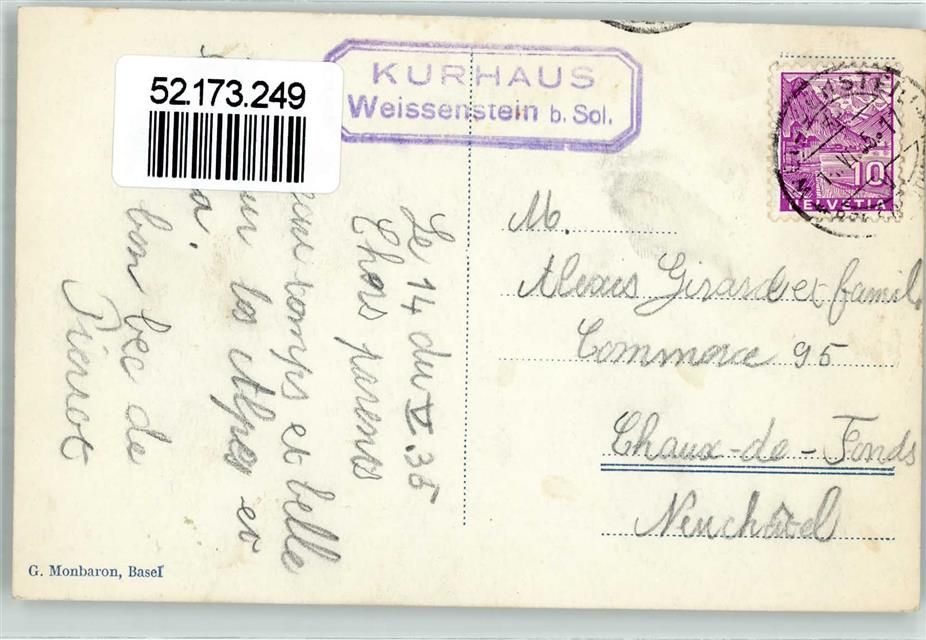 52.173.249
KURHAUS
Weissenstein b. Sol.
10
HELVETIA
M.
Alexis Girard et famil.
Commerce 95
Chaux-de-Fonds
Neuchâtel
Le 14 du V. 35
Chers parents
temps et belle
les Alpes et
bon bec de
Pierrot
G. Monbaron, Basel